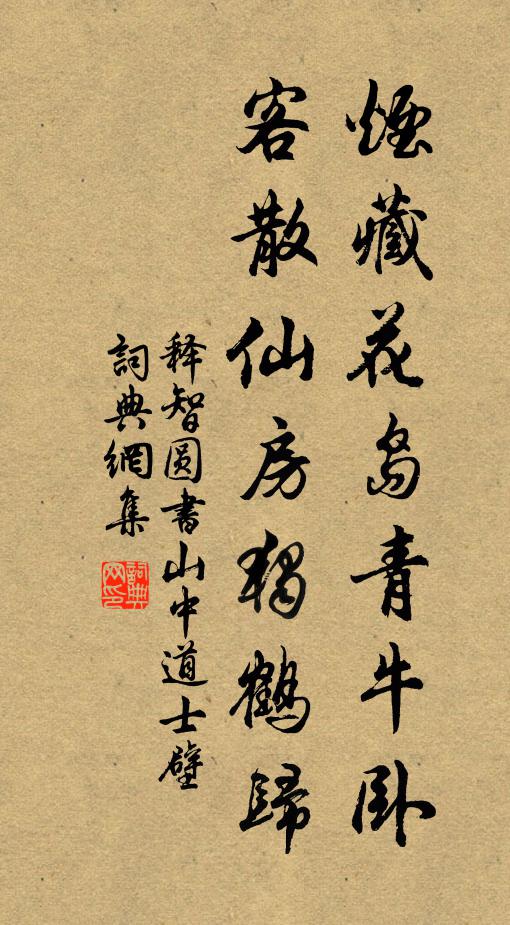 煙藏花岛青牛卧
客散仙房独鶴歸
释智圆書山中道士壁
詞典網集
詞典网印